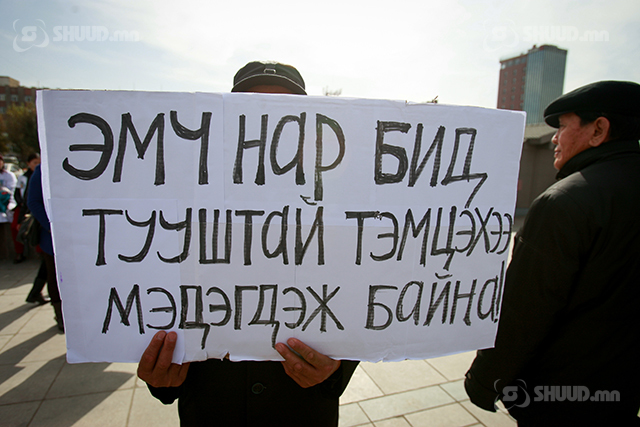 SHUUD.mn
SHUUD.mn
эмч нар бид
тууштай тэмцэхээ
мэдэгдэж байна!
SHUUD.mn